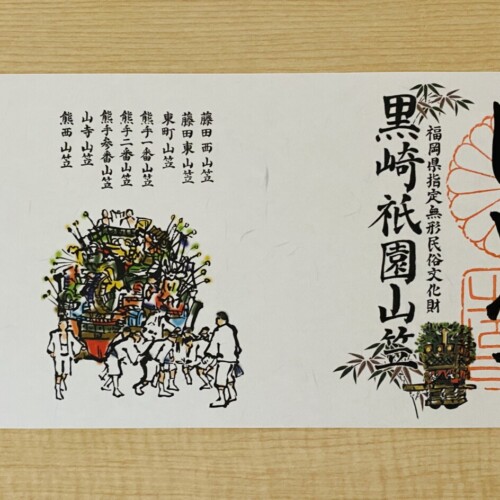 福岡県指定無形民俗文化財
黒崎祇園山笠
藤田西山笠
藤田東山笠
東町山笠
熊手一番山笠
熊手二番山笠
熊手参番山笠
山寺山笠
熊西山笠